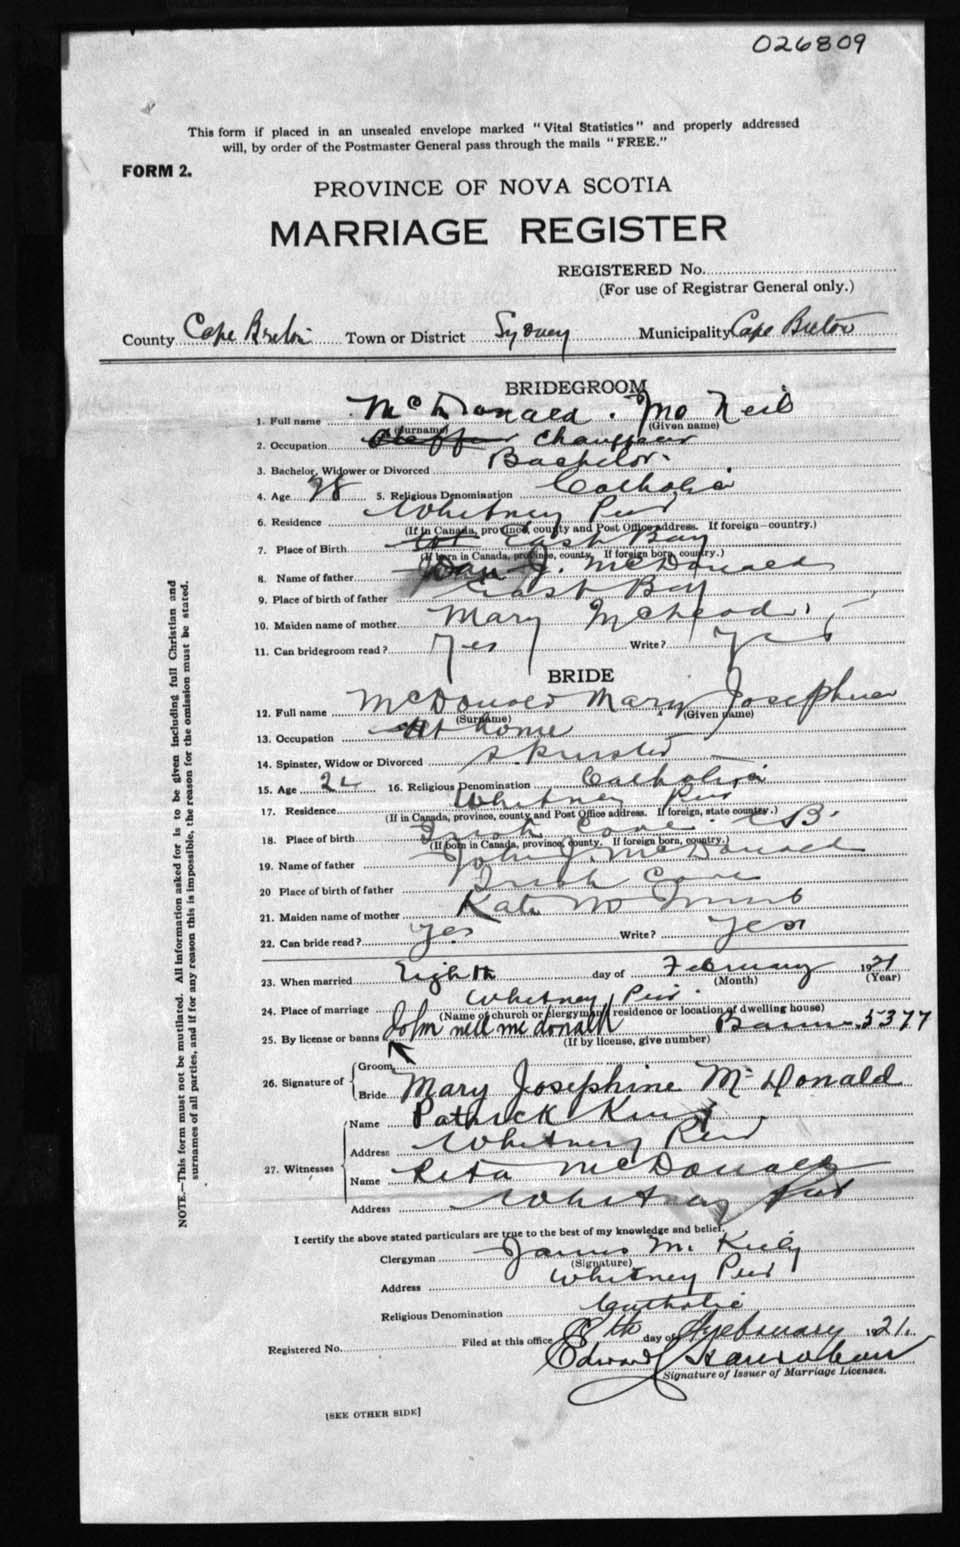 026809
This form if placed in an unsealed envelope marked "Vital Statistics" and properly addressed
will, by order of the Postmaster General pass through the mails "FREE."
FORM 2.
PROVINCE OF NOVA SCOTIA
MARRIAGE REGISTER
REGISTERED No.
(For use of Registrar General only.)
County Cape Breton Town or District Sydney Municipality Cape Breton
BRIDEGROOM
1. Full name McDonald. Jno Neil
(Surname) (Given name)
2. Occupation Chauffeur
3. Bachelor, Widower or Divorced Bachelor.
4. Age 28 5. Religious Denomination Catholic
6. Residence Whitney Pier
(If in Canada, province, county and Post Office address. If foreign—country.)
7. Place of Birth East Bay
(If born in Canada, province, county. If foreign born, country.)
8. Name of father Dan J. McDonald
9. Place of birth of father East Bay
10. Maiden name of mother Mary McLeod
11. Can bridegroom read? Yes Write? Yes
BRIDE
12. Full name McDonald Mary Josephine
(Surname) (Given name)
13. Occupation At home
14. Spinster, Widow or Divorced Spinster
15. Age 24 16. Religious Denomination Catholic
17. Residence Whitney Pier
(If in Canada, province, county and Post Office address. If foreign, state country.)
18. Place of birth Irish Cove C.B.
(If born in Canada, province, county. If foreign born, country.)
19. Name of father John J. McDonald
20 Place of birth of father Irish Cove
21. Maiden name of mother Kate
22. Can bride read? Yes Write? Yes
23. When married Eighth day of February 1921
(Month) (Year)
24. Place of marriage Whitney Pier.
(Name of church or clergyman's residence or location of dwelling house)
25. By license or banns John neil mc donald Banns 5377
(If by license, give number)
26. Signature of Groom
Bride Mary Josephine McDonald
27. Witnesses Name Patrick King
Address Whitney Pier
Name Rita McDonald
Address Whitney Pier
I certify the above stated particulars are true to the best of my knowledge and belief.
Clergyman James M. Kiely
(Signature)
Address Whitney Pier
Religious Denomination Catholic
Registered No. Filed at this office 8th day of February 1921.
Edward
Signature of Issuer of Marriage Licenses.
[SEE OTHER SIDE]
NOTE.—This form must not be mutilated. All information asked for is to be given including full Christian and
surnames of all parties, and if for any reason this is impossible, the reason for the omission must be stated.